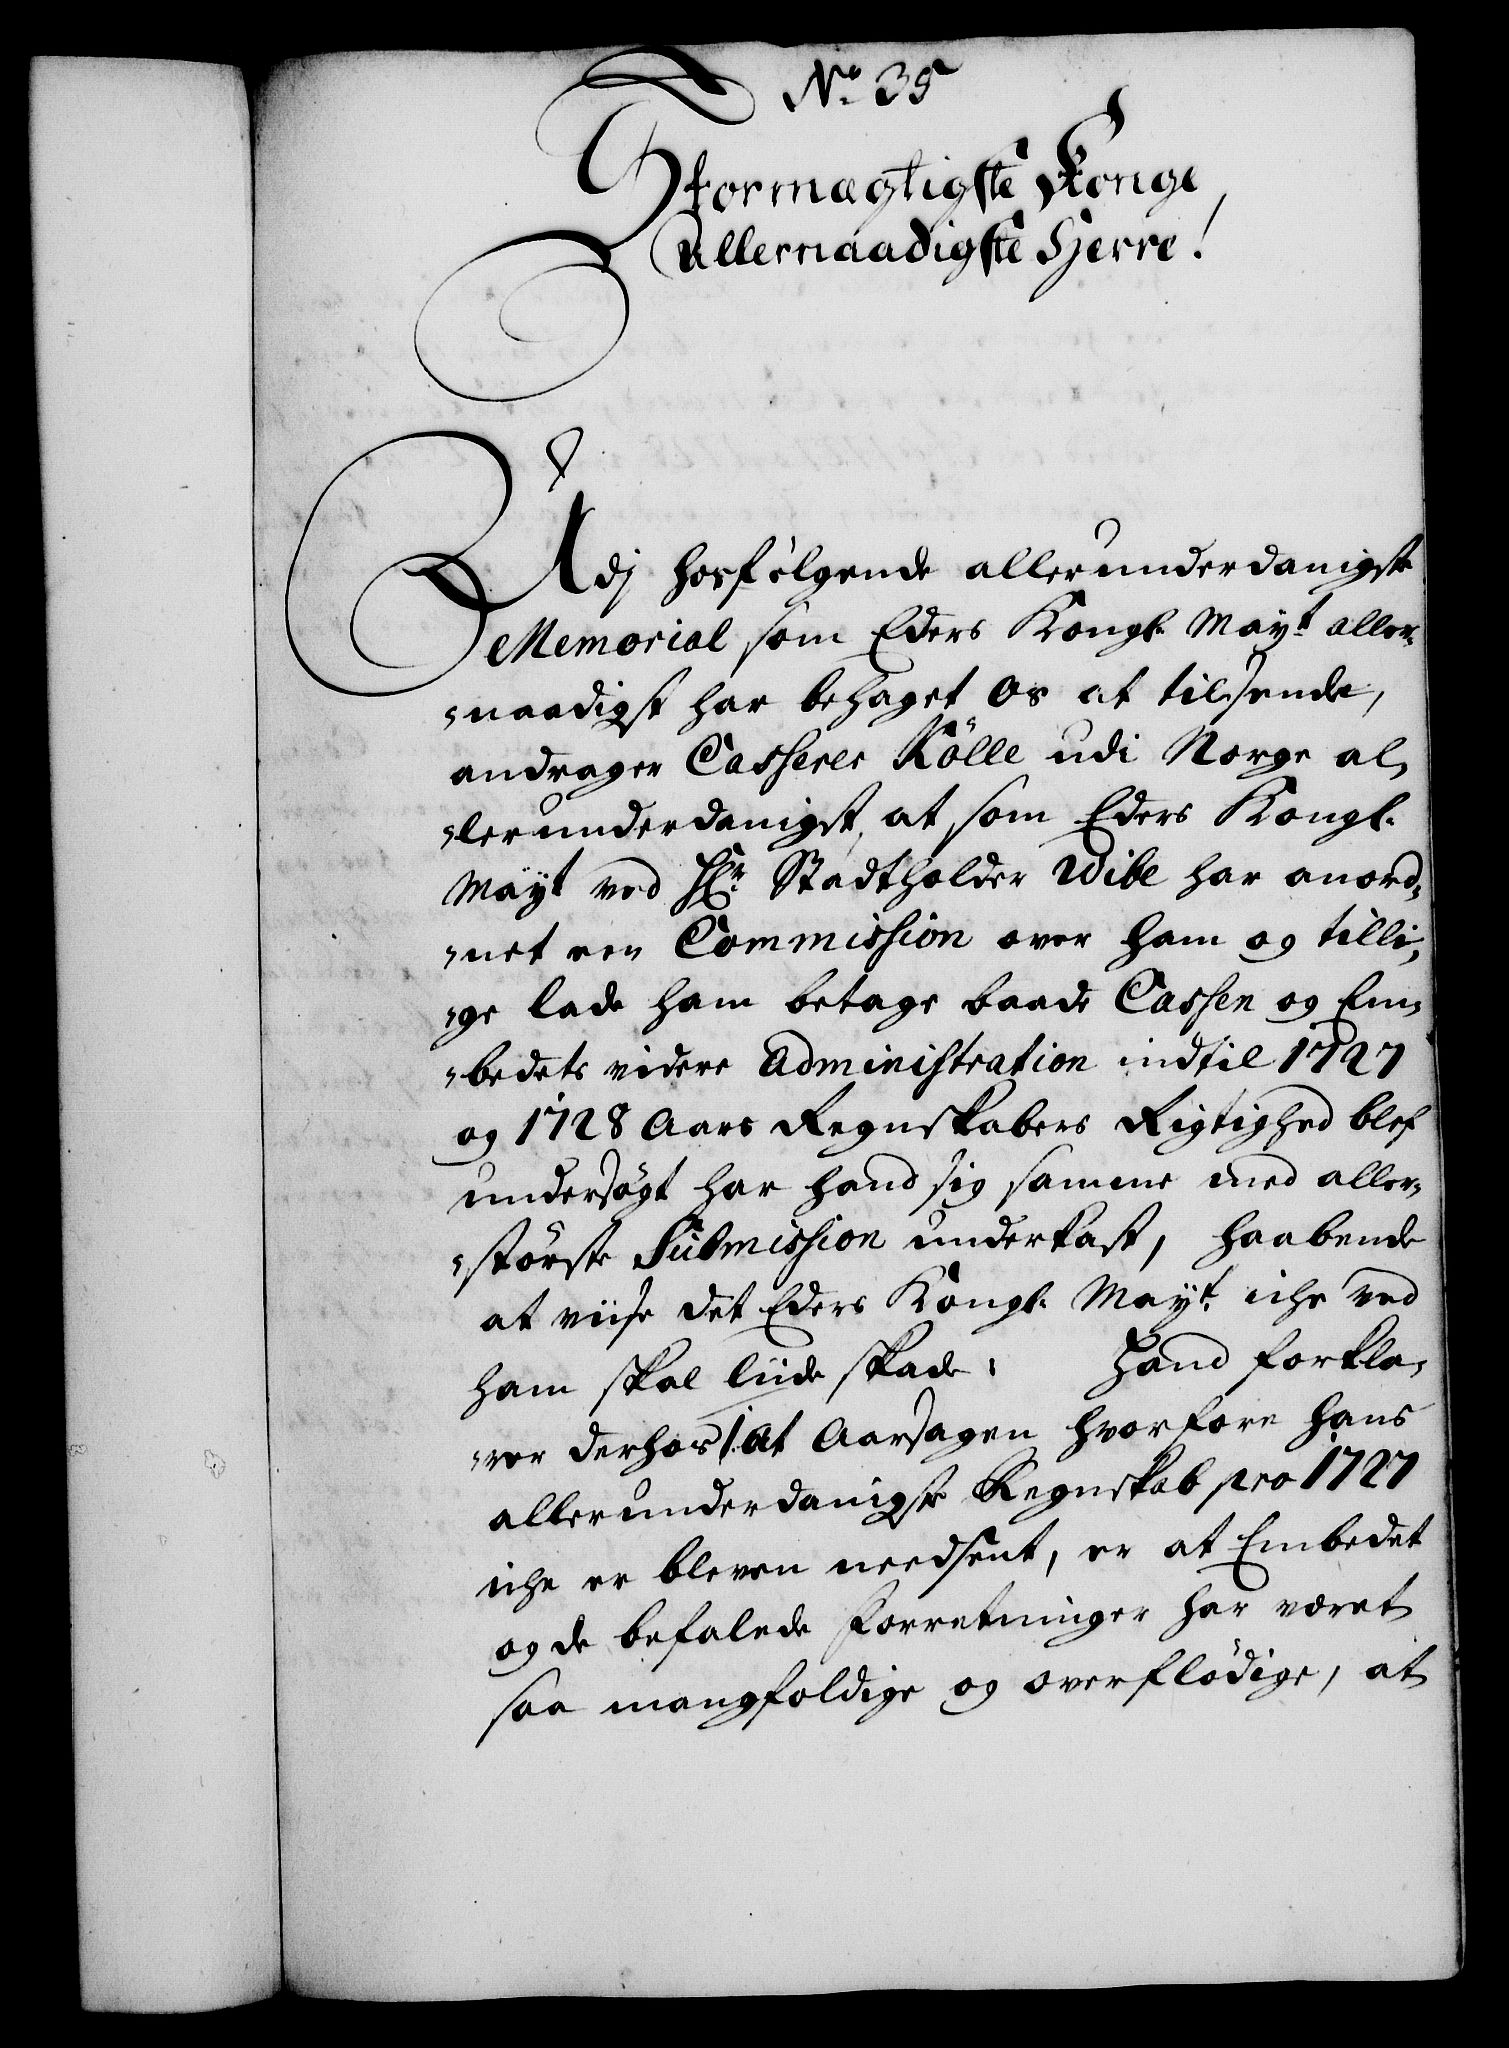 No 35
Stormægtigste Konge,
Allernaadigste Herre!
Udj hosfølgende allerunderdanigste
Memorial som Eders Kongl. Mayt aller-
-naadigst har behaget Os at tilsende,
andrager Casserer Kölle udi Norge al-
-lerunderdanigst, at som Eders Kongl.
Mayt ved Hr. Stadtholder Wibe har anord-
-net een Commission over ham og tilli-
-ge lade ham betage baade Cassen og Em-
-bedets videre Administration indtil 1727
og 1728 Aars Regnskabers Rigtighed blef
undersøgt har hand sig samme med aller-
-störste Submission underkast, haabende
at viise det Eders Kongl. Mayt. iche ved
ham skal liide skade: Hand forkla-
-rer derhos 1. At Aarsagen hvorfore hans
allerunderdanigste Regnskab pro 1727
iche er bleven needsent, er at Embedet
og de befalede Forretninger har været
saa mangfoldige og overflödige, at